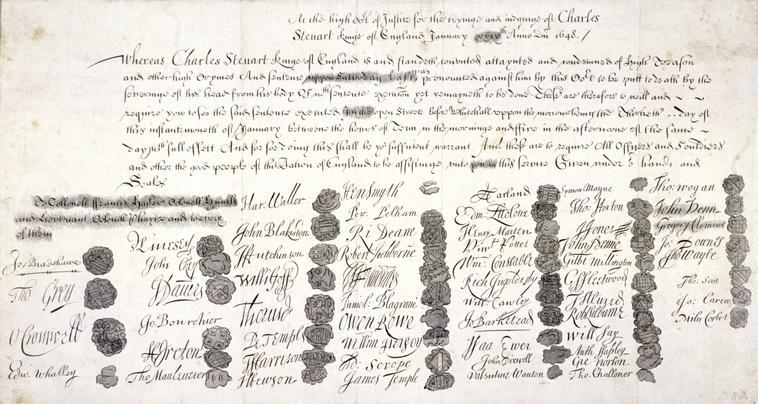 At the high Co:rt of Justice for the tryinge and iudginge of Charles
Steuart Kinge of England January xxixth Anno Dm 1648./
Whereas Charles Steuart Kinge of England is and standeth convicted attaynted and condemned of High Treason
and other high Crymes And sentence uppon Saturday last was pronounced against him by this Co:rt to be putt to death by the
severinge of his head from his body Of wch sentence execucon yet remayneth to be done These are therefore to will and
require you to see the said sentence executed In the open Streete before Whitehall uppon the morrowe being the Thirtieth day of
this instante moneth of January betweene the houres of Tenn in the morninge and Five in the afternoone of the same
day wth full effect And for soe doing this shall be yor sufficient warrant And these are to require All Officers and Souldiers
and other the good people of this Nation of England to be assistinge unto you in this service Given under or hands and
Seales
To Collonell Francis Hacker Colonell Huncks
and Lieutenant Colonell Phayre and to every
of them
Jo Bradshawe
Tho Grey
O Cromwell
Edw. Whalley
M Livesey
John Okey
J Davers
Jo Bourchier
H Ireton
Tho Mauleverer
Har: Waller
John Blakiston
J Hutchinson
Willi Goff
Tho Pride
P Temple
T Harrison
J Hewson
Hen Smyth
Per. Pelham
Ri Deane
Robert Tichborne
H Edwardes
Daniel Blagrave
Owen Rowe
William Purefoy
Ad: Scrope
James Temple
A Garland
Edm: Ludlowe
Henry Marten
Vint Potter
Wm: Constable
Rich Ingoldesby
Will Cawley
Jo Barkstead
Isaa Ewer
John Dixwell
Valentine Wauton
Symon Mayne
Tho: Horton
J Jones
John Penne
Gilbt Millington
G Fleetwood
J Alured
Rob Lilburne
Will Say
Anth Stapley
Gre Norton
Tho: Challoner
Tho: Wogan
John Venn
Gregory Clement
Jo: Downes
Tho Wayte
Tho: Scot
Jo: Carew
Miles Corbet